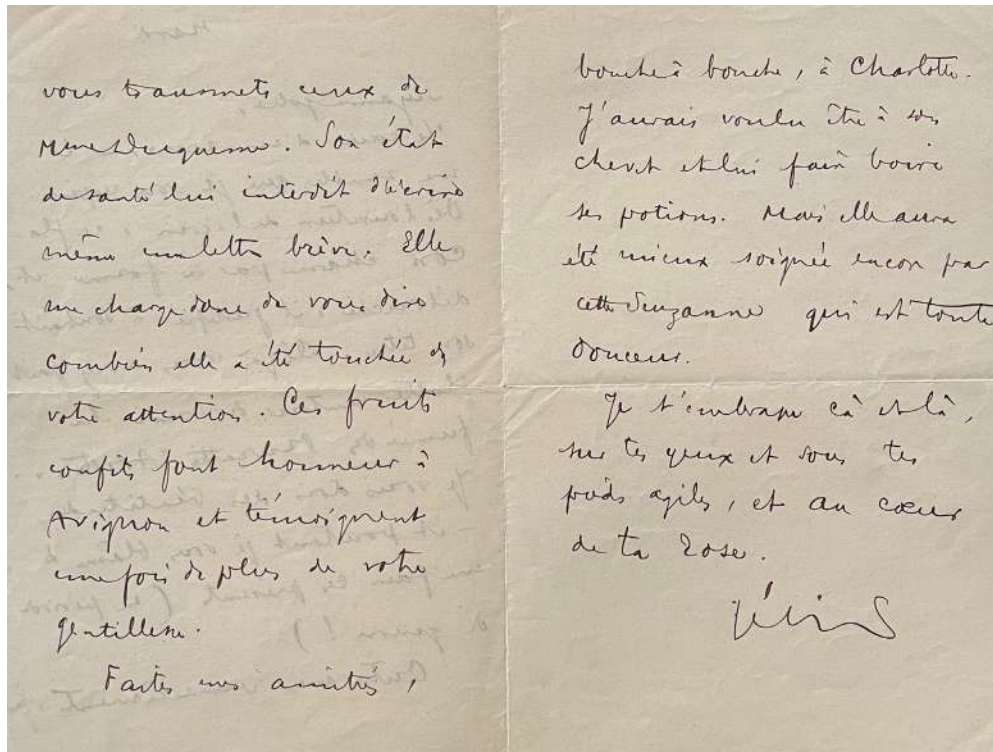 vous transmets ceux de
Mme Duquesne. Son état
de santé lui interdit d'écrire
même une lettre brève. Elle
me charge donc de vous dire
combien elle a été touchée de
votre attention. Ces fruits
confits font honneur à
Avignon et témoignent
une fois de plus de votre
gentillesse.
Faites mes amitiés,
bouche à bouche, à Charlotte.
J'aurais voulu être à son
chevet et lui faire boire
ses potions. Mais elle aura
été mieux soignée encor par
cette Suzanne qui est toute
douceur.
Je t'embrasse çà et là,
sur tes yeux et sous tes
pieds agiles, et au cœur
de ta rose.